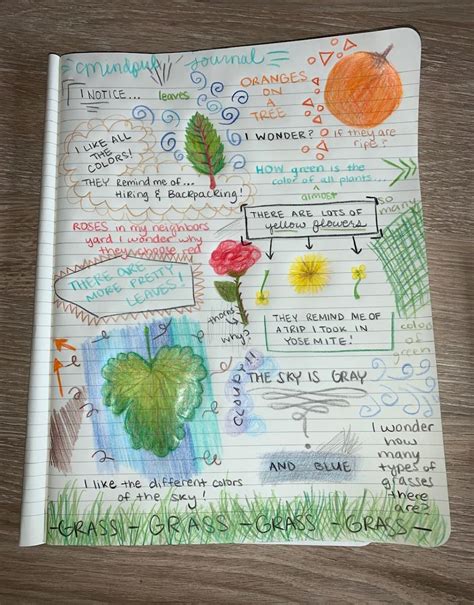 Mindful Journal
I NOTICE...
leaves
ORANGES
ON A
TREE
I LIKE ALL
THE
COLORS!
THEY REMIND ME OF...
HIKING & BACKPACKING!
I WONDER? if they are
ripe?
HOW green is the
color of all plants...
almost
so
many
color of
green
ROSES in my neighbors
yard I wonder why
they choose red
THERE ARE LOTS OF
yellow flowers
THERE ARE
MORE PRETTY
LEAVES!
thorns
why?
THEY REMIND ME OF
A TRIP I TOOK IN
YOSEMITE!
CLOUDS
THE SKY IS GRAY
?
AND BLUE
I wonder
how
many
types of
grasses
there
are?
I like the different colors
of the sky!
-GRASS - GRASS - GRASS - GRASS -